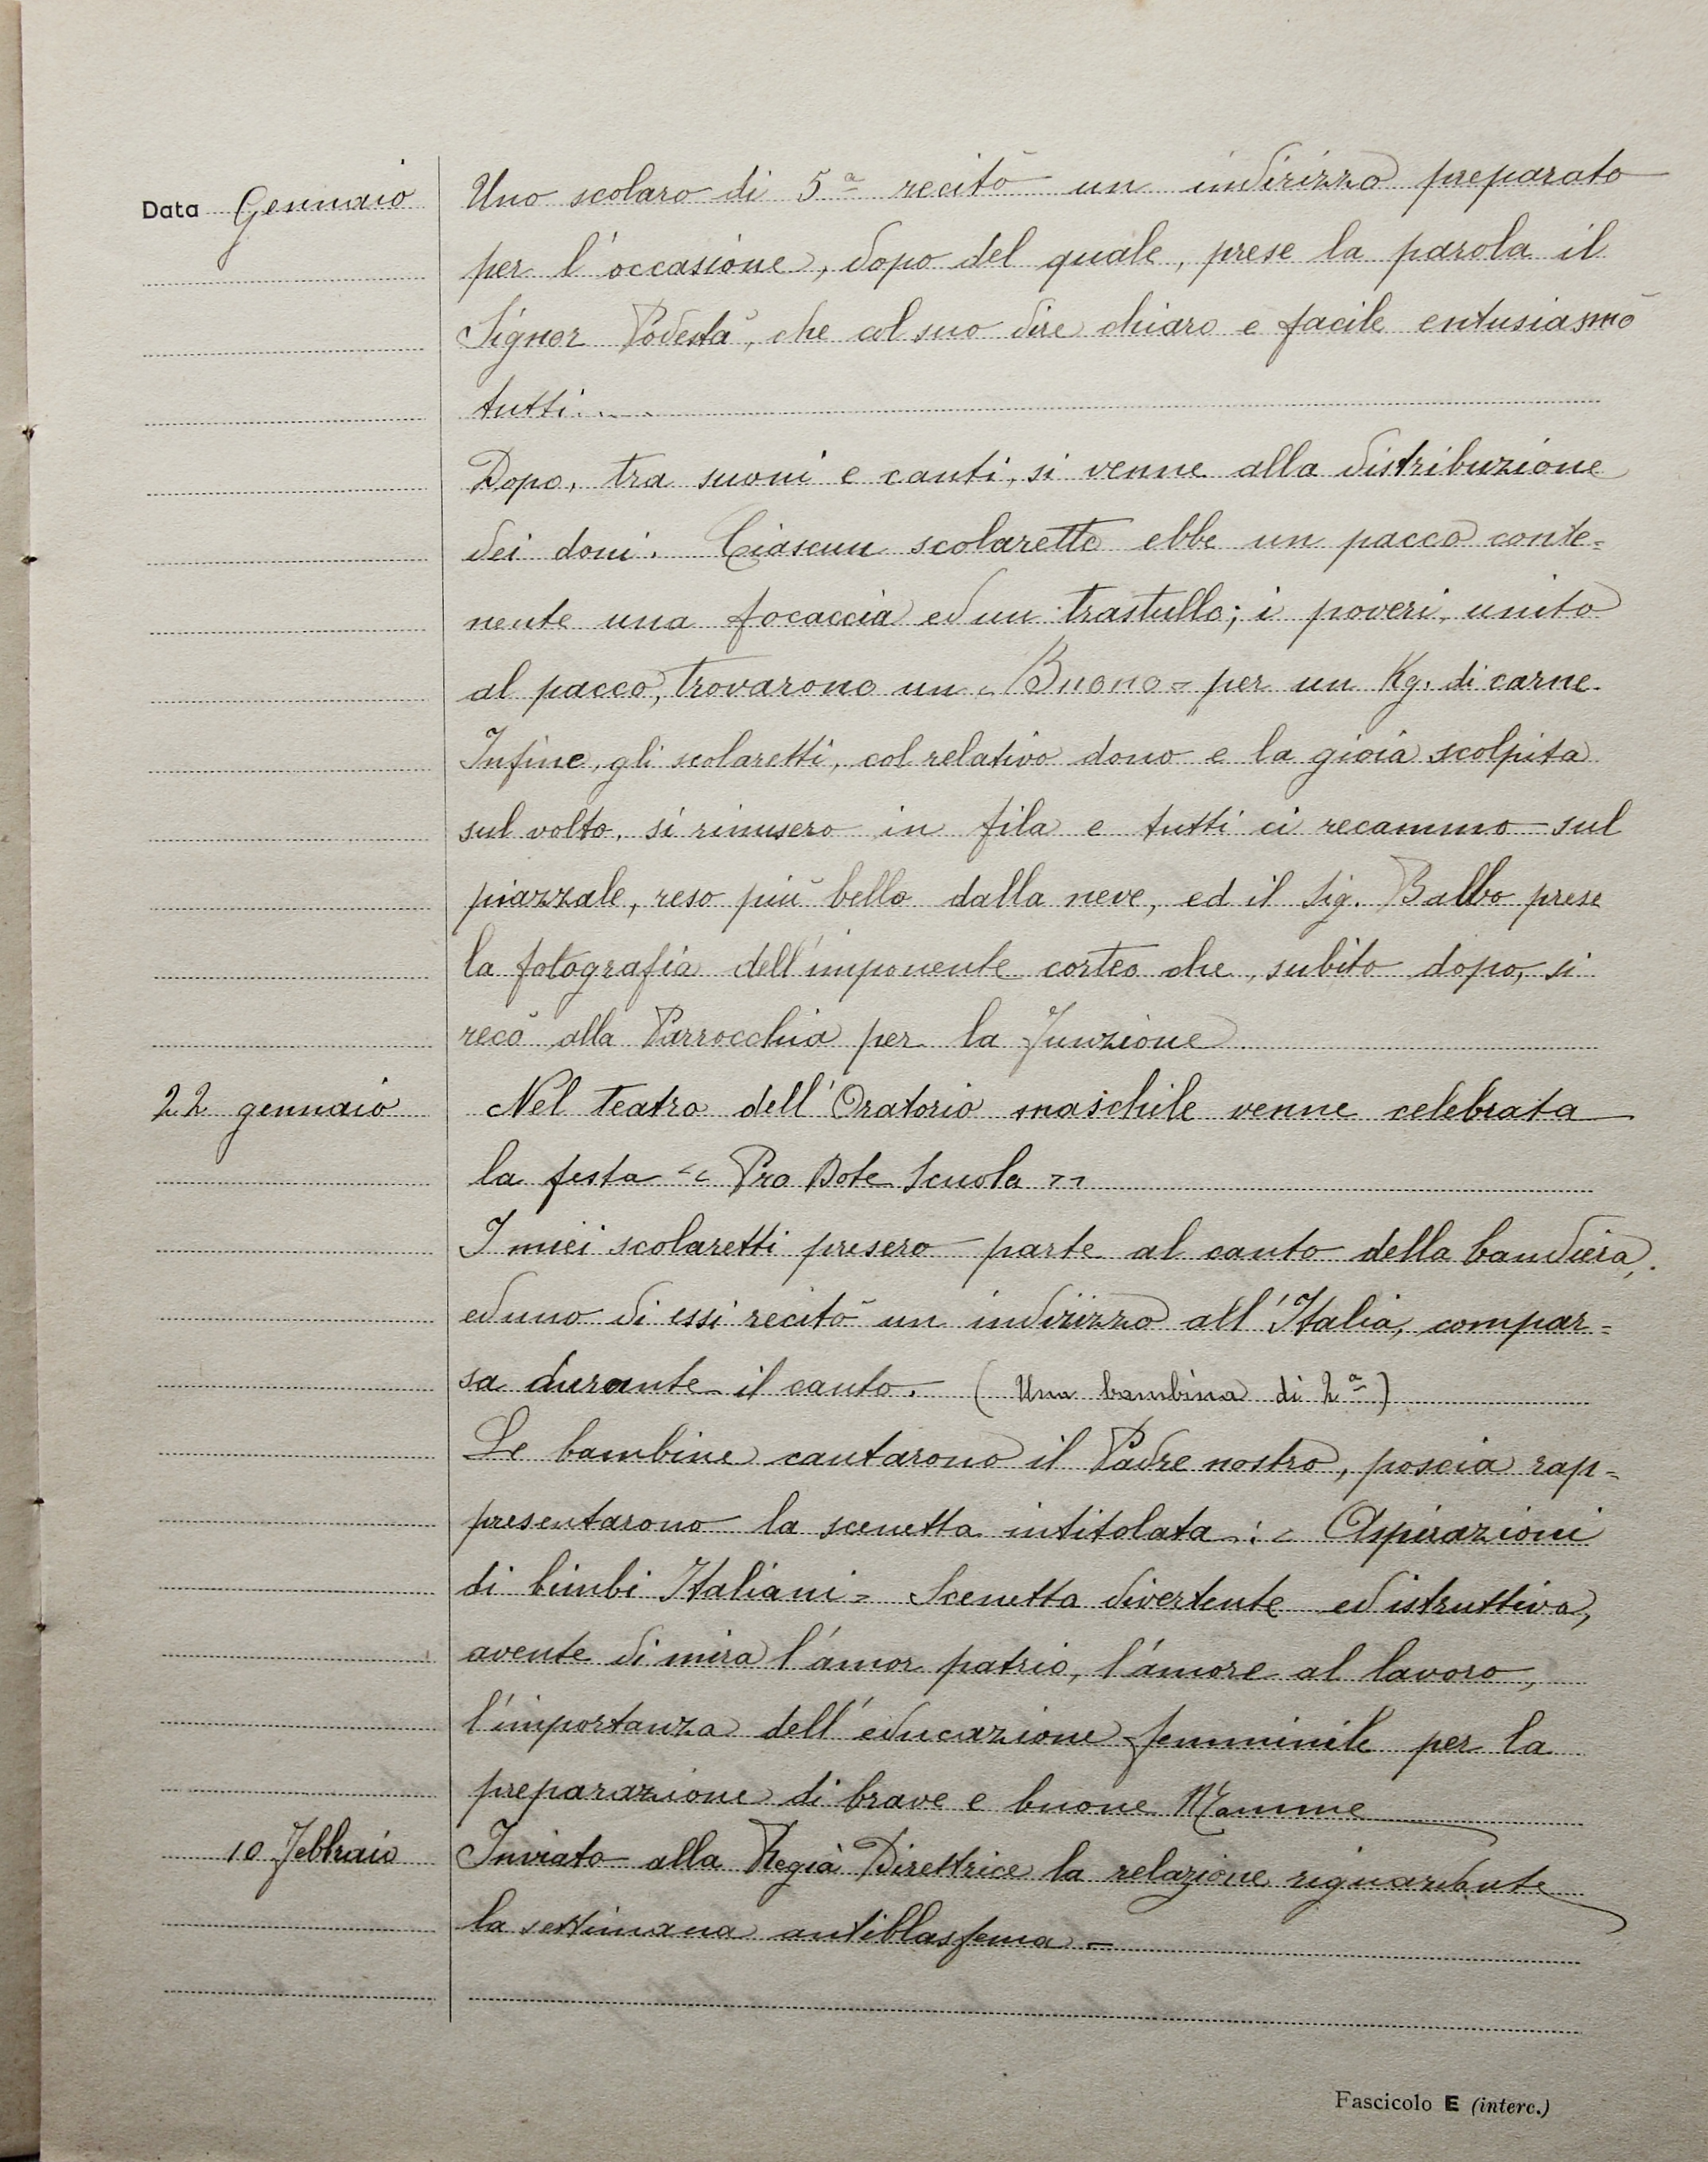 Data Gennaio
Uno scolaro di 5ª recitò un indirizzo preparato
per l'occasione, dopo del quale, prese la parola il
Signor Podestà, che col suo dire chiaro e facile entusiasmò
tutti....
Dopo, tra suoni e canti, si venne alla distribuzione
dei doni. Ciascun scolaretto ebbe un pacco conte=
nente una focaccia ed un trastullo; i poveri, unito
al pacco, trovarono un "Buono" per un Kg. di carne.
Infine, gli scolaretti, col relativo dono e la gioia scolpita
sul volto, si rimisero in fila e tutti ci recammo sul
piazzale, reso più bello dalla neve, ed il Sig. Balbo prese
la fotografia dell'imponente corteo che, subito dopo, si
recò alla Parrocchia per la Funzione
22 gennaio
Nel Teatro dell'Oratorio maschile venne celebrata
la festa "Pro Dote Scuola"
I miei scolaretti presero parte al canto della bandiera,
ed uno di essi recitò un indirizzo all'Italia, compar=
sa durante il canto. (Una bambina di 2ª)
Le bambine cantarono il Padre nostro, poscia rap=
presentarono la scenetta intitolata: = Aspirazioni
di bimbi Italiani = Scenetta divertente ed istruttiva,
avente di mira l'amor patrio, l'amore al lavoro,
l'importanza dell'educazione femminile per la
preparazione di brave e buone Mamme
10 Febbraio
Inviato alla Regia Direttrice la relazione riguardante
la settimana antiblasfema -
Fascicolo E (interc.)